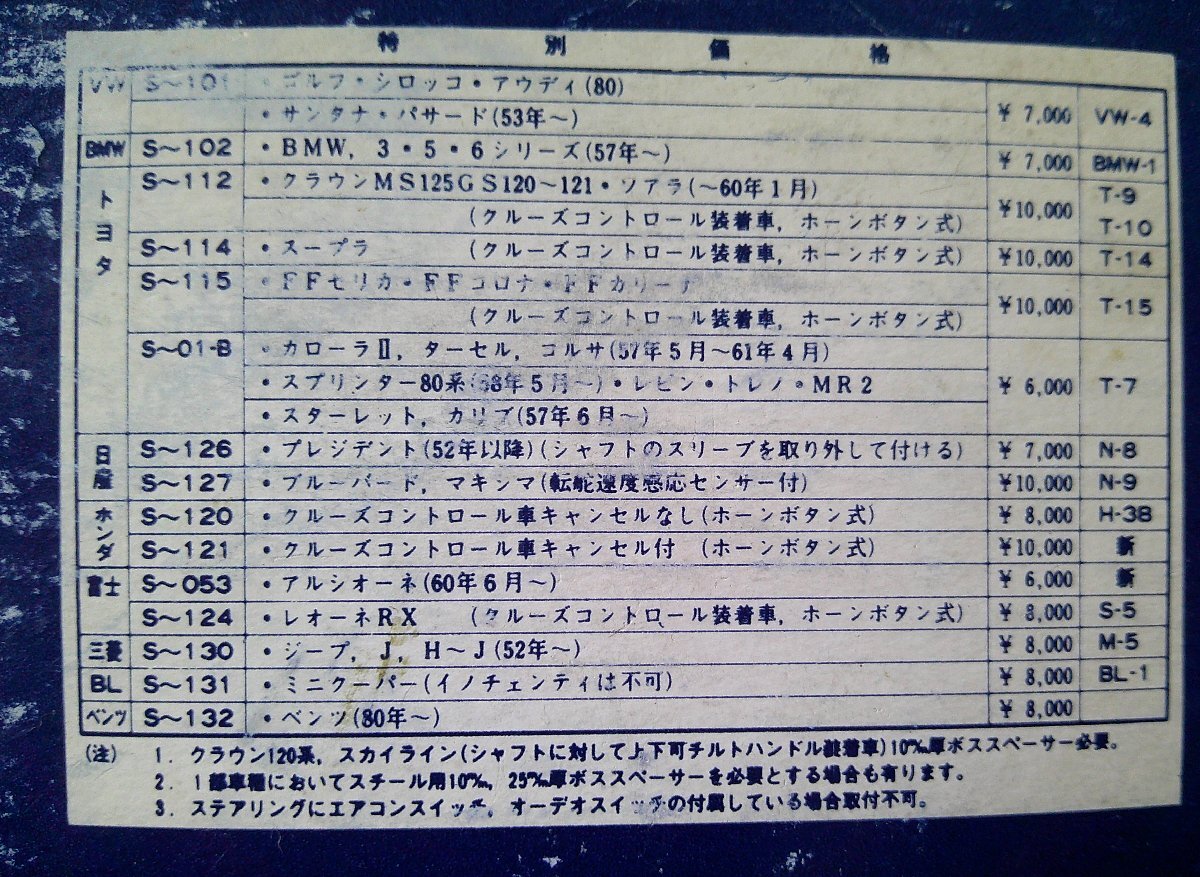 特別価格
VW S～101 ・ゴルフ・シロッコ・アウディ(80)
・サンタナ・パサード(53年～) ¥ 7,000 VW-4
BMW S～102 ・BMW, 3・5・6シリーズ(57年～) ¥ 7,000 BMW-1
トヨタ S～112 ・クラウンMS125GS120～121・ソアラ(～60年1月) ¥10,000 T-9
(クルーズコントロール装着車, ホーンボタン式) T-10
S～114 ・スープラ (クルーズコントロール装着車, ホーンボタン式) ¥10,000 T-14
S～115 ・FFセリカ・FFコロナ・FFカリーナ
(クルーズコントロール装着車, ホーンボタン式) ¥10,000 T-15
S～01-B ・カローラⅡ, ターセル, コルサ(57年5月～61年4月)
・スプリンター80系(58年5月～)・レビン・トレノ・MR2 ¥ 6,000 T-7
・スターレット, カリブ(57年6月～)
日産 S～126 ・プレジデント(52年以降)(シャフトのスリーブを取り外して付ける) ¥ 7,000 N-8
S～127 ・ブルーバード, マキシマ(転舵速度感応センサー付) ¥10,000 N-9
ホンダ S～120 ・クルーズコントロール車キャンセルなし(ホーンボタン式) ¥ 8,000 H-38
S～121 ・クルーズコントロール車キャンセル付 (ホーンボタン式) ¥10,000 新
富士 S～053 ・アルシオーネ(60年6月～) ¥ 6,000 新
S～124 ・レオーネRX (クルーズコントロール装着車, ホーンボタン式) ¥ 8,000 S-5
三菱 S～130 ・ジープ, J, H～J(52年～) ¥ 8,000 M-5
BL S～131 ・ミニクーパー(イノチェンティは不可) ¥ 8,000 BL-1
ベンツ S～132 ・ベンツ(80年～) ¥ 8,000
(注) 1. クラウン120系, スカイライン(シャフトに対して上下可チルトハンドル装着車)10㎜厚ボススペーサー必要。
2. 1部車種においてスチール用10㎜, 25㎜厚ボススペーサーを必要とする場合も有ります。
3. ステアリングにエアコンスイッチ, オーデオスイッチの付属している場合取付不可。